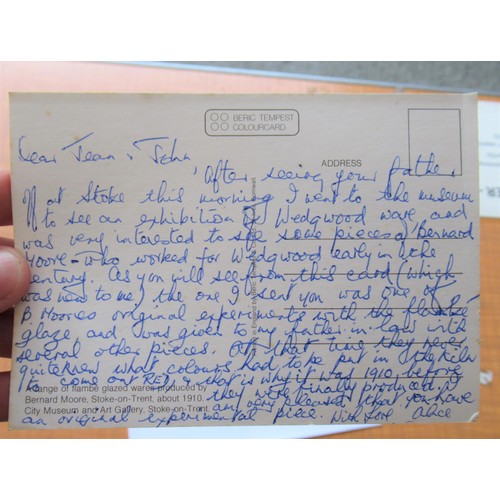 BERIC TEMPEST
COLOURCARD
ADDRESS
Dear Jean & John
After seeing your father
at Stoke this morning I went to the museum
to see an exhibition of Wedgwood ware and
was very interested to see some pieces of Bernard
Moore - who worked for Wedgwood early in the
century. As you will see from this card (which
was new to me) the one I sent you was one of
B Moores original experiments with the flambé
glaze and was given to my father in law with
several other pieces. At that time they never
quite knew what colours had to be put in the kiln
to come out RED, that is why it was 1910, before
they were finally produced. I
A range of flambe glazed wares produced by
Bernard Moore, Stoke-on-Trent, about 1910.
City Museum and Art Gallery, Stoke-on-Trent.
am very pleased that you have
an original experimental piece. With love Alice